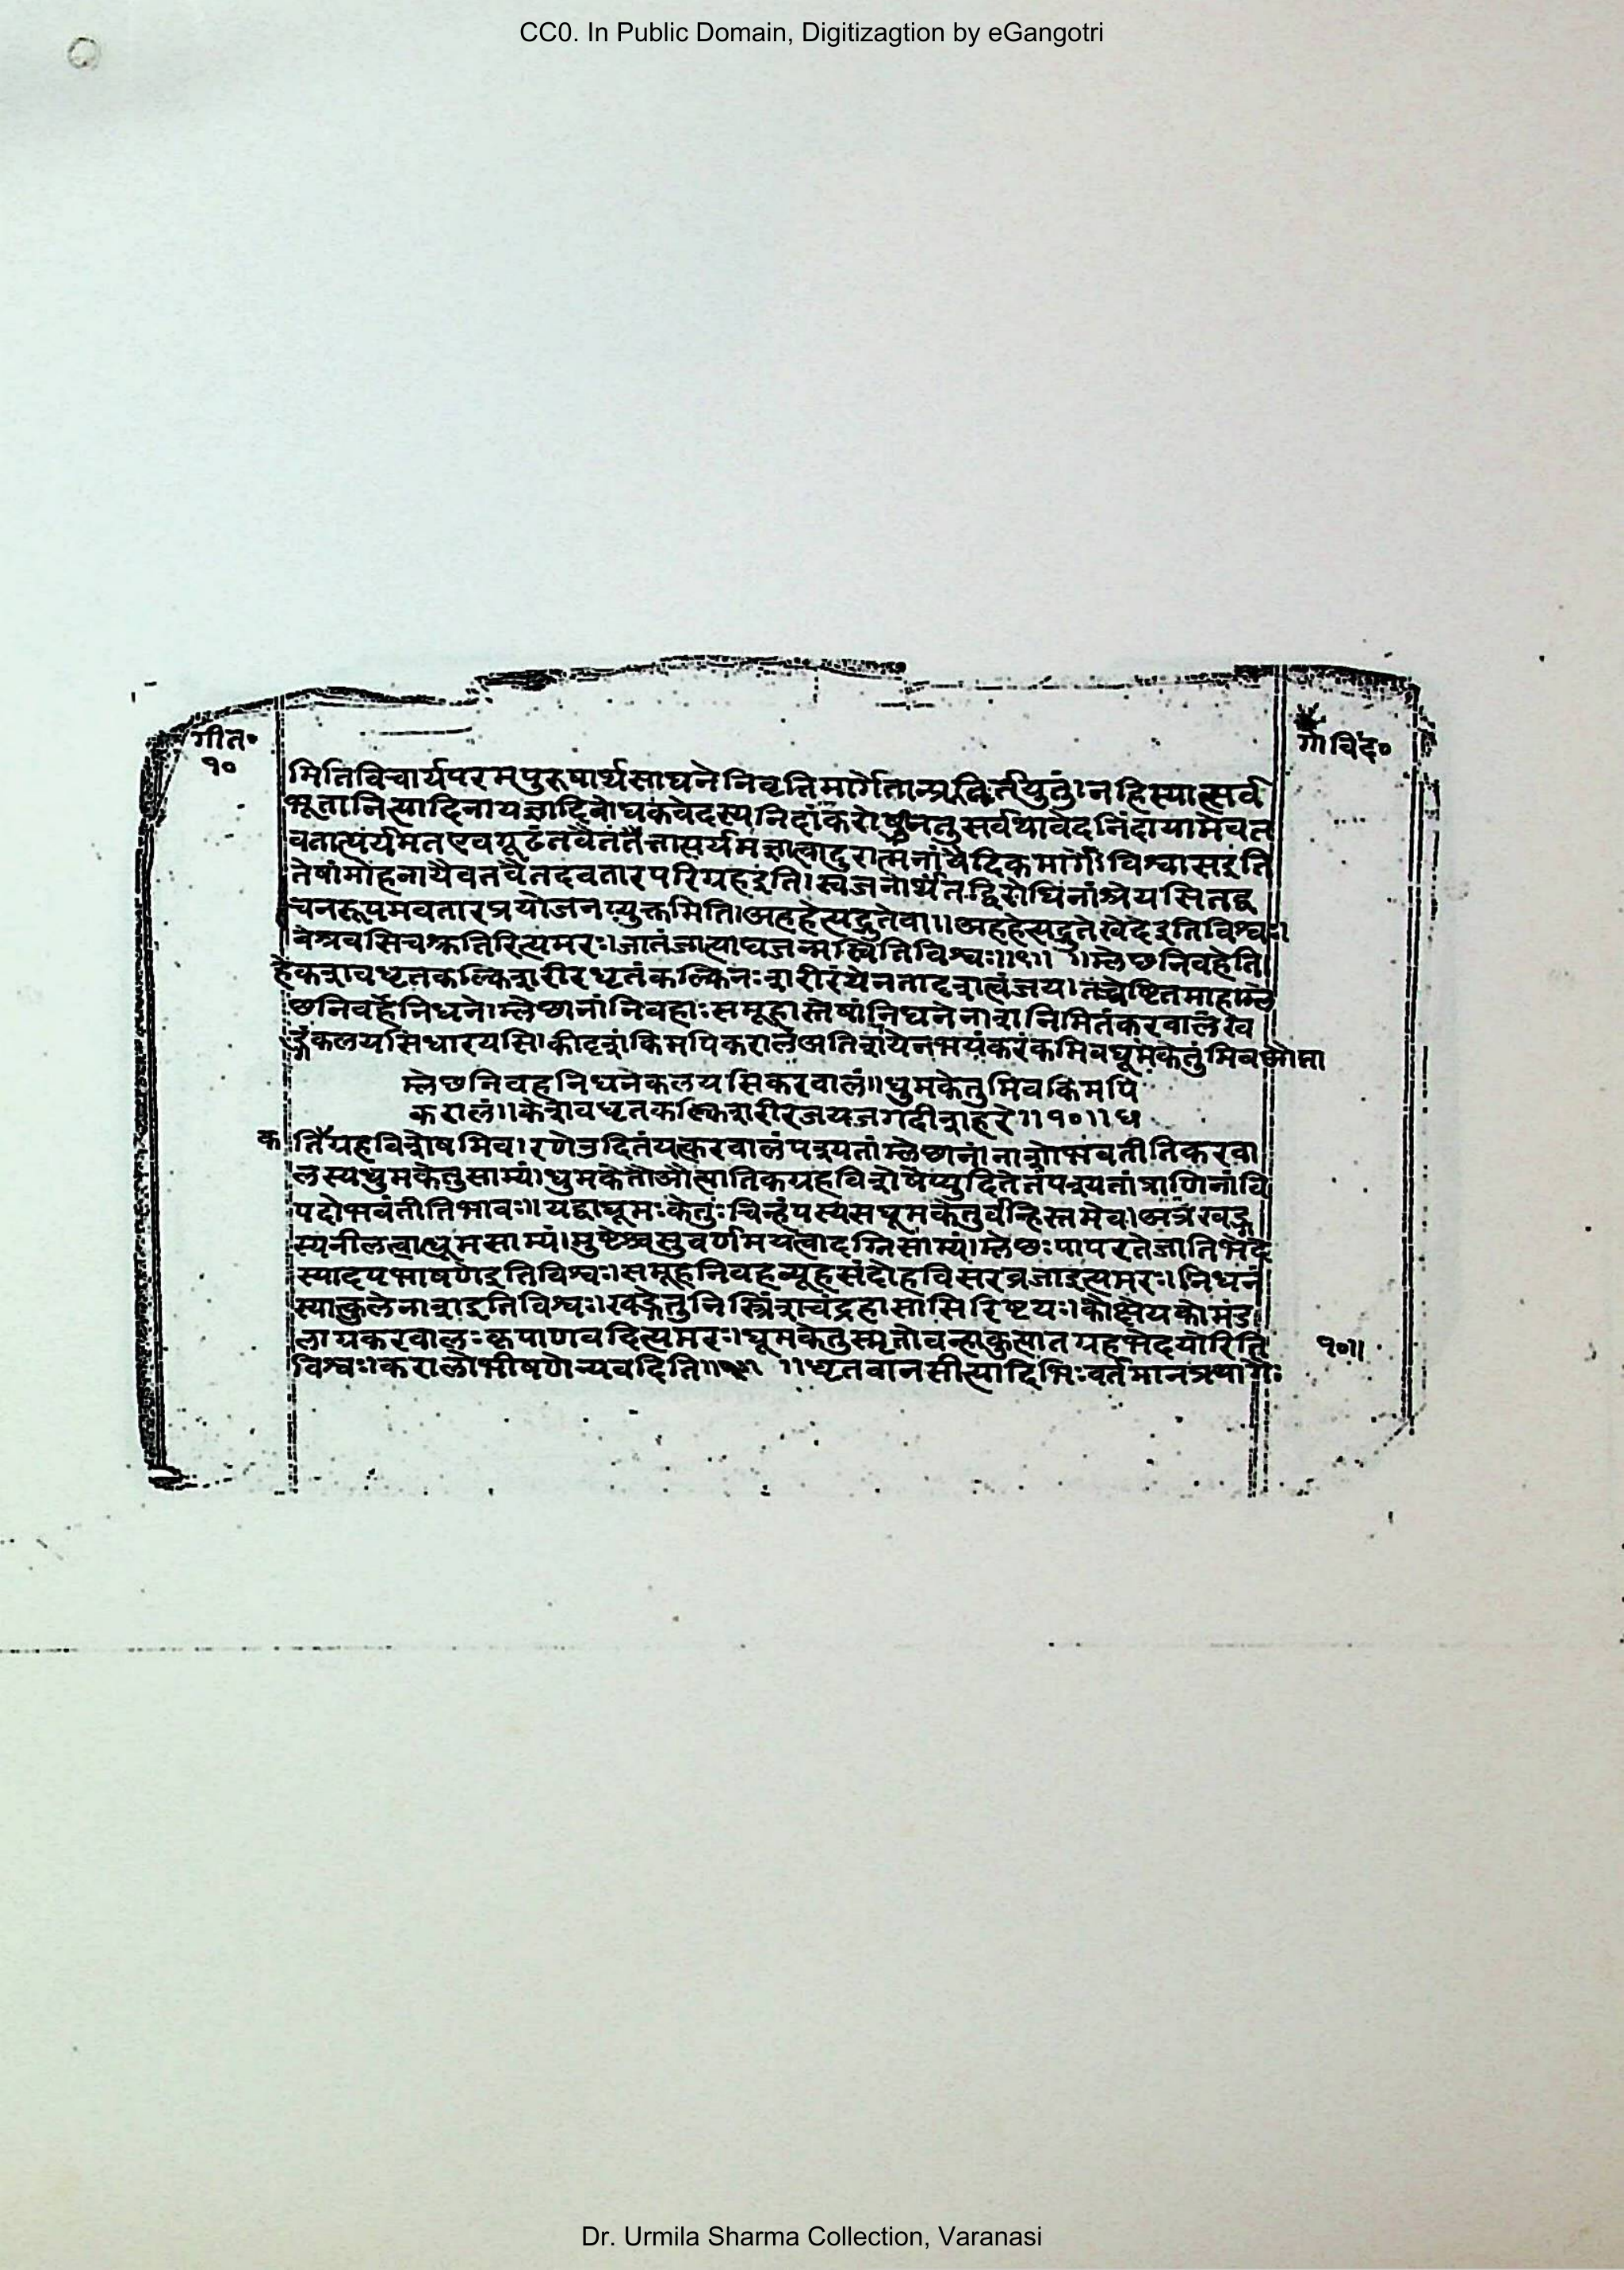 CC0. In Public Domain, Digitizagtion by eGangotri
गीत॰
१०
गोविंद॰
मितिविचार्यपरमपुरुषार्थसाधने निवृत्तिमार्गेतान्प्र नहिस्यात्सर्व
भूतानित्यादिनायज्ञादिबोधकवेदस्यनिंदांकरोषि नतुसर्वथावेदनिंदायामेवत
वतात्पर्यमतएवगूढंतवैतं दुरात्मनांवैदिकमार्गे विश्वासइति
तेषांमोहनायैवतवैतदवतारपरिग्रहइति।स्वजनोर्थेतद्विरोधिनांश्रेयसितद्व
चनरूपमवतारप्रयोजनप्युक्तमिति।अहहेत्यद्भुतेवा॥अहहेत्यद्भुतेखेदेइतिविश्वः।
वेश्रवसिचश्रुतिरित्यमरः।जातंजात्योघजन्मस्वितिविश्वः॥९॥ ॥म्लेछनिवहेति।
हेकेशवधृतकल्किशरीरधृतंकल्किनःशरीरंयेनतादृशत्वंजय।तच्चेष्टितमाहम्ले
छनिवहेनिधने।म्लेछानांनिवहाःसमूहास्तेषांनिधनेनाशनिमितंकरवालंख
ड्गंकलयसिधारयसि।कीदृशंकिमपिकरालंअतिशयेनभयंकरंकमिवधूमकेतुंमिवओत्पा
म्लेछनिवहनिधनेकलयसिकरवालं॥धुमकेतुमिवकिमपि
करालं॥केशवधृतकल्किशरीरजयजगदीशहरे॥१०॥ध
तिकग्रहविशेषमिव।रणेउदितंयत्करवालंपश्यतांम्लेछानांनाशोभवतीतिकरवा
लस्यधुमकेतुसाम्यं।धुमकेतौऔत्पातिकग्रहविशेषेप्युदितेतंपश्यतांप्राणिनांवि
पदोभवंतीतिभावः॥यद्वाधूमःकेतुःचिन्हंयस्यसधूमकेतुर्वन्हिस्तमेव।अत्रखड्ग
स्यनीलत्वाध्धूमसाम्यं।मुष्टेश्चसुवर्णमयत्वादग्निसाम्यं।म्लेछःपापरतेजातिभेदे
स्यादपभाषणेइतिविश्वः।समूहनिवहव्यूहसंदोहविसरव्रजाइत्यमरः।निधनं
स्यात्कुलेनाशइतिविश्वः।खड्गेतुनिस्त्रिंशचंद्रहासासिरिष्टयः।कौक्षेयकोमंड
लाग्रकरवालःकृपाणवदित्यमरः।धूमकेतुस्मृतोवन्हावुत्पातग्रहभेदयोरिति
विश्वः।करालोभीषणेन्यवदिति॥१०॥ ॥धृतवानसीत्यादिभिःवर्तमानप्रयोगैः
१०॥
Dr. Urmila Sharma Collection, Varanasi